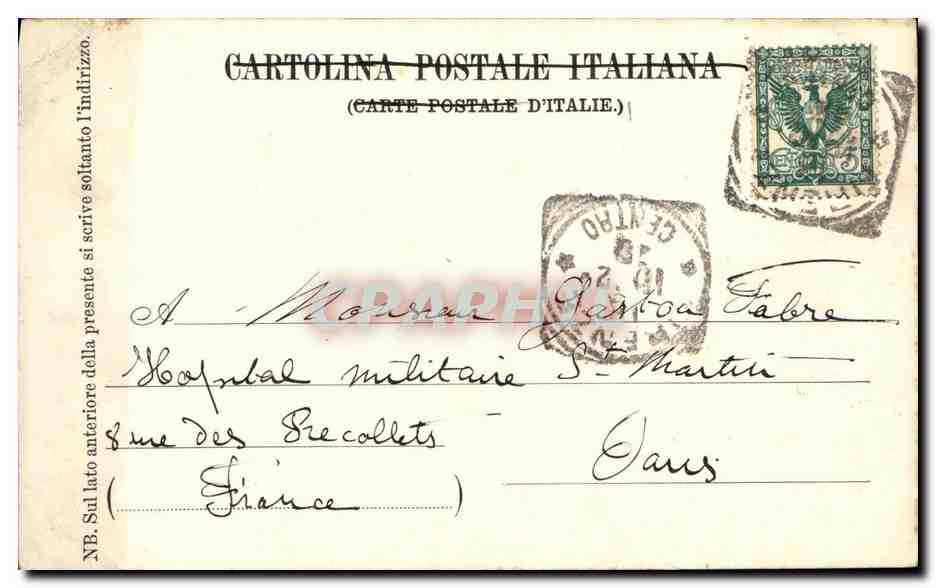 CARTOLINA POSTALE ITALIANA
(CARTE POSTALE D'ITALIE.)
NB. Sul lato anteriore della presente si scrive soltanto l'indirizzo.
CENT. 5
CENTRO
10
CPAPHIL
A Monsieur Gaston Fabre
Hopital militaire St Martin
8 rue des Recollets
Paris
(France)